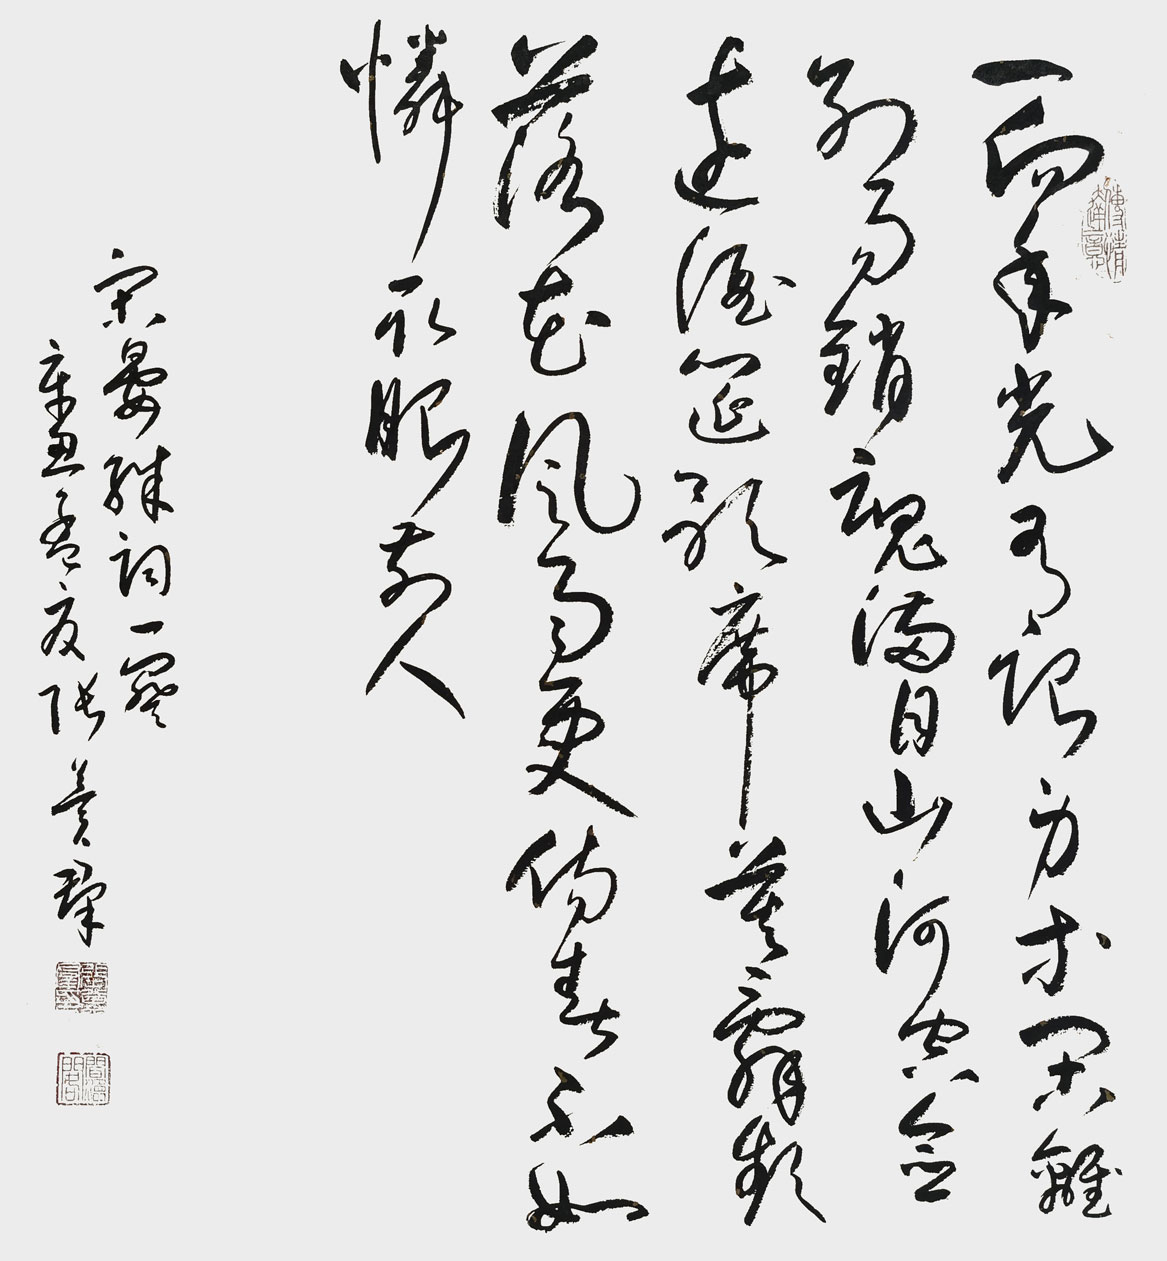 傳情達意
一向年光有限身等閑離
別易銷魂滿目山河空念
遠酒筵歌席莫辭頻
落花風雨更傷春不如
憐取眼前人
宋晏殊詞一闋
辛丑孟夏張美